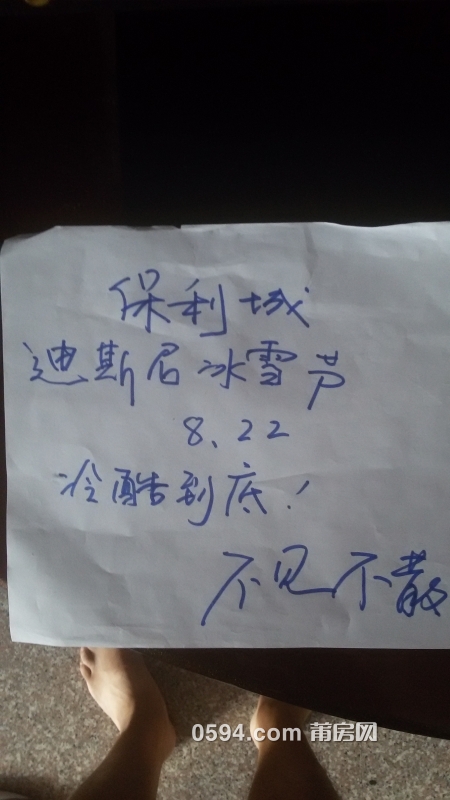 保利城
迪斯尼冰雪节
8.22
冷酷到底!
不见不散
0594.com 莆房网